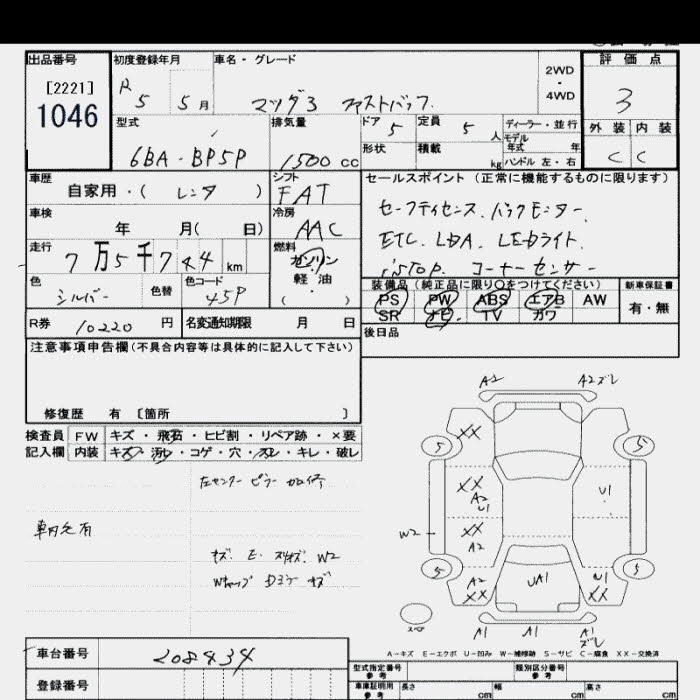 出品番号
[2221]
1046
初度登録年月
R 5 5 月
車名・グレード
マツダ3 ファストバック
2WD
・
4WD
評価点
3
型式
6BA-BP5P
排気量
1500 cc
ドア 5
定員 5 人
ディーラー・並行
モデル年式 年
形状
積載 kg
ハンドル 左・右
外装 内装
C C
車歴
自家用・( レンタ )
シフト
FAT
セールスポイント (正常に機能するものに限ります)
セーフティセンス. バックモニター.
ETC. LDA. LEDライト.
iSTOP. コーナーセンサー
車検
年 月( 日)
冷房
AAC
走行
7万5千744 km
燃料
ガソリン
軽・油
( )
色
シルバー
色替
色コード
45P
装備品 (純正品に限り○をつけてください)
PS PW ABS エアB AW
SR ナビ TV カワ
新車保証書
有・無
R券 10220 円
名変通知期限 月 日
後日品
注意事項申告欄(不具合内容等は具体的に記入して下さい)
修復歴 有 〔箇所 〕
検査員 FW キズ・飛石・ヒビ割・リペア跡・×要
記入欄 内装 キズ・汚レ・コゲ・穴・スレ・キレ・破レ
左センターピラー加修
車内乞有
キズ. E. スリキズ. W2
Wキャップ Dミラー キズ
A2 A2ズレ
XX
5 5
XX
A2
U1
U1
W2
XX
A2
5 5
A2
XX
UA1
U1
XX
スペア
A1 A1 A1
ズレ
A-キズ E-エクボ U-凹み W-補修跡 S-サビ C-腐食 XX-交換済
車台番号 208434
登録番号
型式指定番号
参考
類別区分番号
参考
車庫証明用
参考
長さ cm 幅 cm 高さ cm